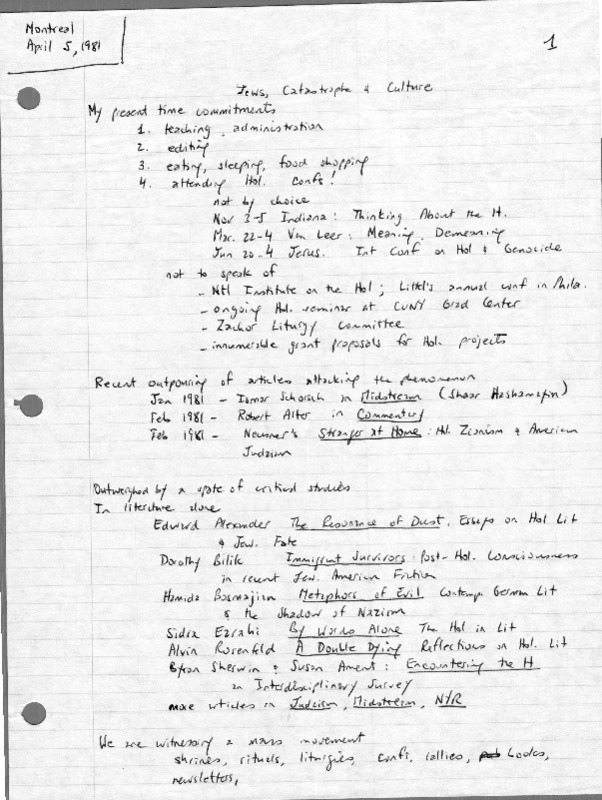 Montreal
April 5, 1981
1
Jews, Catastrophe & Culture
My present time commitments
1. teaching, administration
2. editing
3. eating, sleeping, food shopping
4. attending Hol. Confs!
not by choice
Nov 3-5 Indiana: Thinking About the H.
Mar. 22-4 Van Leer: Meaning, Demeaning
Jun 20-4 Jerus. Int Conf on Hol & Genocide
not to speak of
- Ntl Institute on the Hol; Littel's annual conf in Phila.
- ongoing Hol. seminar at CUNY Grad Center
- Zachor Liturgy Committee
- innumerable grant proposals for Hol. projects
Recent outpouring of articles attacking the phenomenon
Jan 1981 - Ismar Schorsch in Midstream (Shaar Hashamayim)
Feb 1981 - Robert Alter in Commentary
Feb 1981 - Neusner's Stranger at Home: Hol. Zionism & American
Judaism
Outweighed by a spate of critical studies
In literature alone
Edward Alexander The Resonance of Dust, Essays on Hol Lit
& Jew. Fate
Dorothy Bilik Immigrant Survivors: Post-Hol. Consciousness
in recent Jew. American Fiction
Hamida Bosmajian Metaphors of Evil Contemp. German Lit
& the Shadow of Nazism
Sidra Ezrahi By Words Alone The Hol in Lit
Alvin Rosenfeld A Double Dying Reflections on Hol. Lit
Byron Sherwin & Susan Ament: Encountering the H
an Interdisciplinary Survey
more articles in Judaism, Midstream, NYR
We are witnessing a mass movement
shrines, rituals, liturgies, confs, rallies, books,
newsletters,